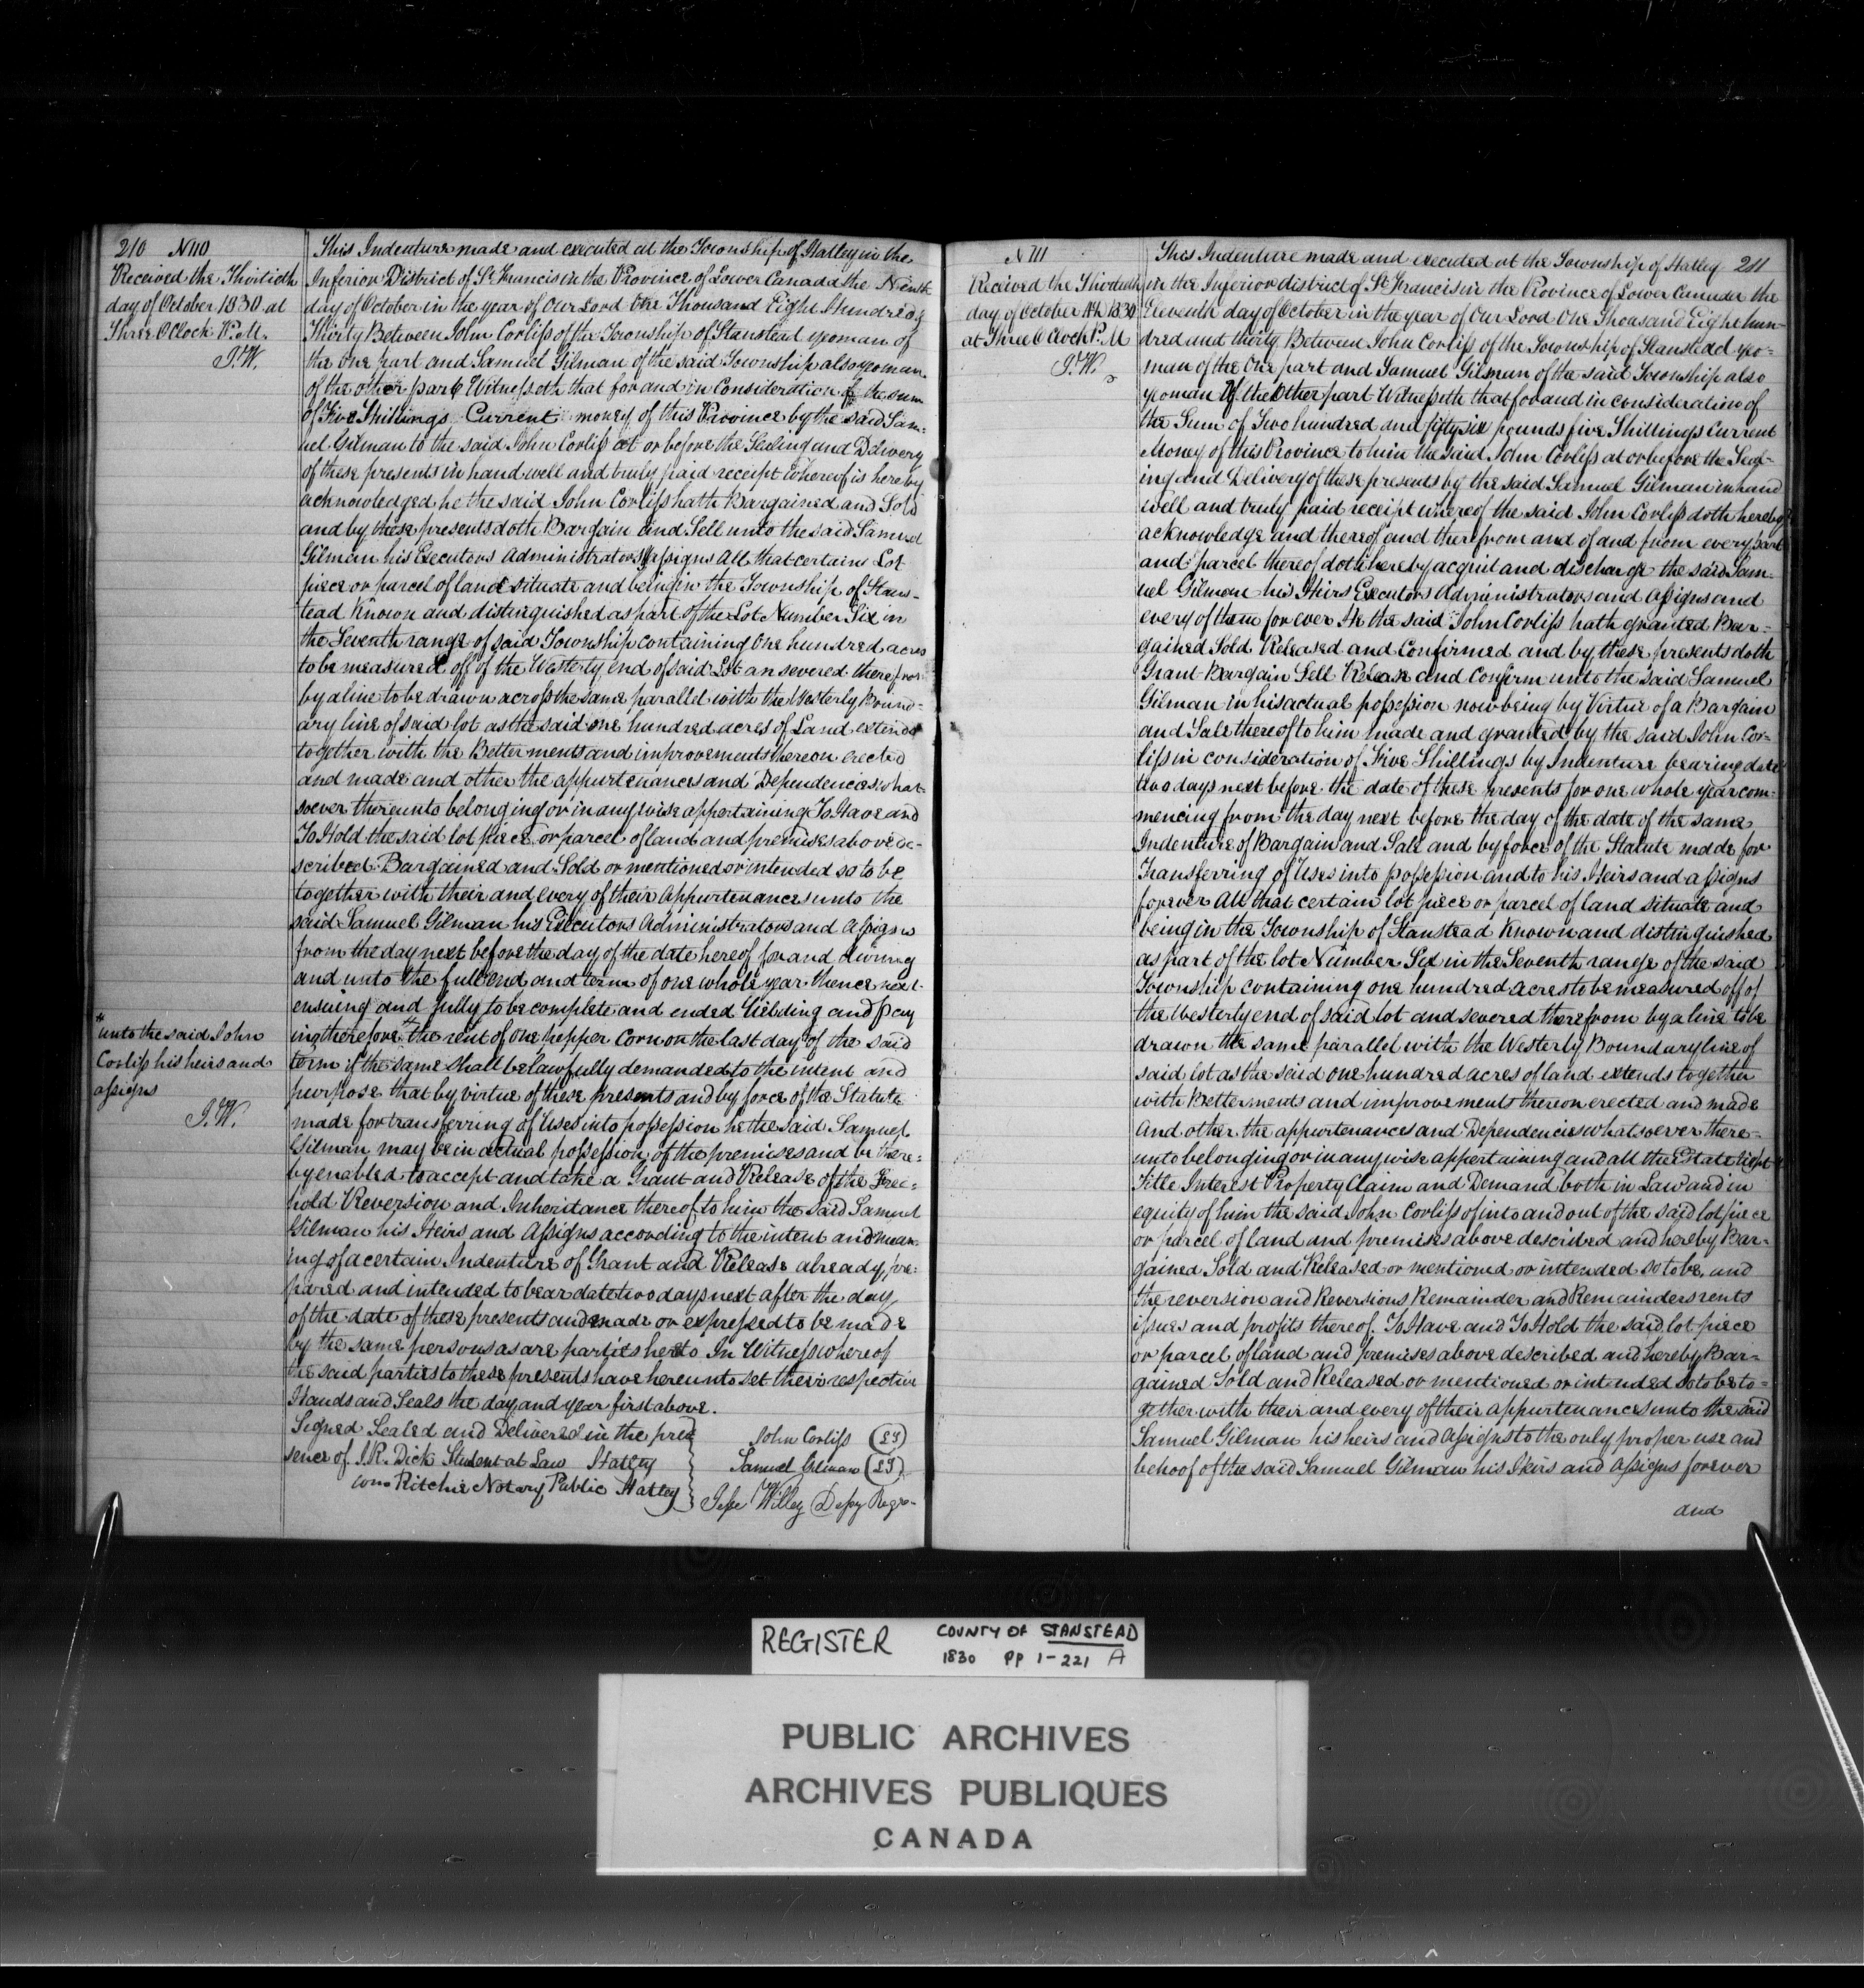 210 N 110
Received the Thirtieth
day of October 1830 at
Three OClock P.M.
J.W.
This Indenture made and executed at the Township of Hatley in the
Inferior District of St Francis in the Province of Lower Canada the Nienth
day of October in the year of Our Lord One Thousand Eight Hundred &
Thirty Between John Corliss of the Township of Stanstead yeoman of
the One part and Samuel Gilman of the said Township also yeoman
of the other part Witnesseth that for and in Consideration of the sum
of Five Shillings Current money of this Province by the said Sam-
uel Gilman to the said John Corliss at or before the Sealing and Delivery
of these presents in hand well and truly paid receipt whereof is hereby
acknowledged he the said John Corliss hath Bargained and Sold
and by these presents doth Bargain and Sell unto the said Samuel
Gilman his Executors Administrators & assigns All that certain Lot
piece or parcel of land situate and being in the Township of Stans-
tead Known and distinguished as part of the Lot Number Six in
the Seventh range of said Township containing One hundred acres
to be measured off of the Westerly end of said Lot an severed therefrom
by a line to be drawn across the same parallel with the Westerly Bound-
ary line of said lot as the said one hundred acres of Land extends
together with the Betterments and improvements thereon erected
and made and other the appurtenances and Dependencies what-
soever thereunto belonging or in any wise appertaining To Have and
To Hold the said lot piece or parcel of land and premises above de-
scribed Bargained and Sold or mentioned or intended so to be
together with their and every of their Appurtenances unto the
said Samuel Gilman his Executors Administrators and Assigns
from the day next before the day of the date hereof for and during
and unto the full end and term of one whole year thence next
ensuing and fully to be complete and ended Yielding and pay
ing therefore * the rent of one pepper Corn on the last day of the said
term if the same shall be lawfully demanded to the intent and
purpose that by virtue of these presents and by force of the Statute
made for transferring of Uses into possession he the said Samuel
Gilman may be in actual possession of the premises and be there-
by enabled to accept and take a Grant and Release of the Free-
hold Reversion and Inheritance thereof to him the said Samuel
Gilman his Heirs and Assigns according to the intent and mean-
ing of a certain Indenture of Grant and Release already pre-
pared and intended to bear date two days next after the day
of the date of these presents and made or expressed to be made
by the same persons as are parties hereto In Witness whereof
the said parties to these presents have hereunto set their respective
Hands and Seals the day and year first above.
* unto the said John
Corliss his heirs and
assigns
J.W.
Signed Sealed and Delivered in the pres
sence of J.R. Dick Student at Law Hatley
Wm Ritchie Notary Public Hatley
John Corliss (LS)
Samuel Gilman (LS)
Jesse Willey Depy Regr
N 111
Received the Thirtieth
day of October 1830
at Three O Clock P.M
J.W.
This Indenture made and executed at the Township of Hatley 211
in the Inferior district of St Francis in the Province of Lower Canada the
Eleventh day of October in the year of Our Lord One Thousand Eight hun-
dred and thirty Between John Corliss of the Township of Stanstead yeo-
man of the One part and Samuel Gilman of the said Township also
yeoman Of the Other part Witnesseth that for and in consideration of
the Sum of Two hundred and fifty six pounds five Shillings Current
Money of this Province to him the said John Corliss at or before the Seal-
ing and Delivery of these presents by the said Samuel Gilman in hand
well and truly paid receipt whereof the said John Corliss doth hereby
acknowledge and thereof and therefrom and of and from every part
and parcel thereof doth hereby acquit and discharge the said Sam-
uel Gilman his Heirs Executors Administrators and Assigns and
every of them for ever He the said John Corliss hath granted Bar-
gained Sold Released and Confirmed and by these presents doth
Grant Bargain Sell Release and Confirm unto the said Samuel
Gilman in his actual possession now being by Virtue of a Bargain
and Sale thereof to him made and granted by the said John Cor-
liss in consideration of Five Shillings by Indenture bearing date
two days next before the date of these presents for one whole year com-
mencing from the day next before the day of the date of the same
Indenture of Bargain and Sale and by force of the Statute made for
Transferring of Uses into possession and to his Heirs and assigns
forever All that certain lot piece or parcel of land situate and
being in the Township of Stanstead Known and distinguished
as part of the lot Number Six in the Seventh range of the said
Township containing one hundred acres to be measured off of
the Westerly end of said lot and severed therefrom by a line to be
drawn the same parallel with the Westerly Boundary line of
said lot as the said one hundred acres of land extends together
with Betterments and improvements thereon erected and made
and other the appurtenances and Dependencies whatsoever there-
unto belonging or in anywise appertaining and all the Estate right
Title Interest Property Claim and Demand both in Law and in
equity of him the said John Corliss of into and out of the said lot piece
or parcel of land and premises above described and hereby Bar-
gained Sold and Released or mentioned or intended so to be, and
the reversion and Reversions Remainder and Remainders rents
issues and profits thereof. To Have and To Hold the said lot piece
or parcel of land and premises above described and hereby Bar-
gained Sold and Released or mentioned or intended so to be to-
gether with their and every of their appurtenances unto the said
Samuel Gilman his heirs and Assigns to the only proper use and
behoof of the said Samuel Gilman his Heirs and Assigns forever
and
REGISTER COUNTY OF STANSTEAD
1830 PP 1-221 A
PUBLIC ARCHIVES
ARCHIVES PUBLIQUES
CANADA